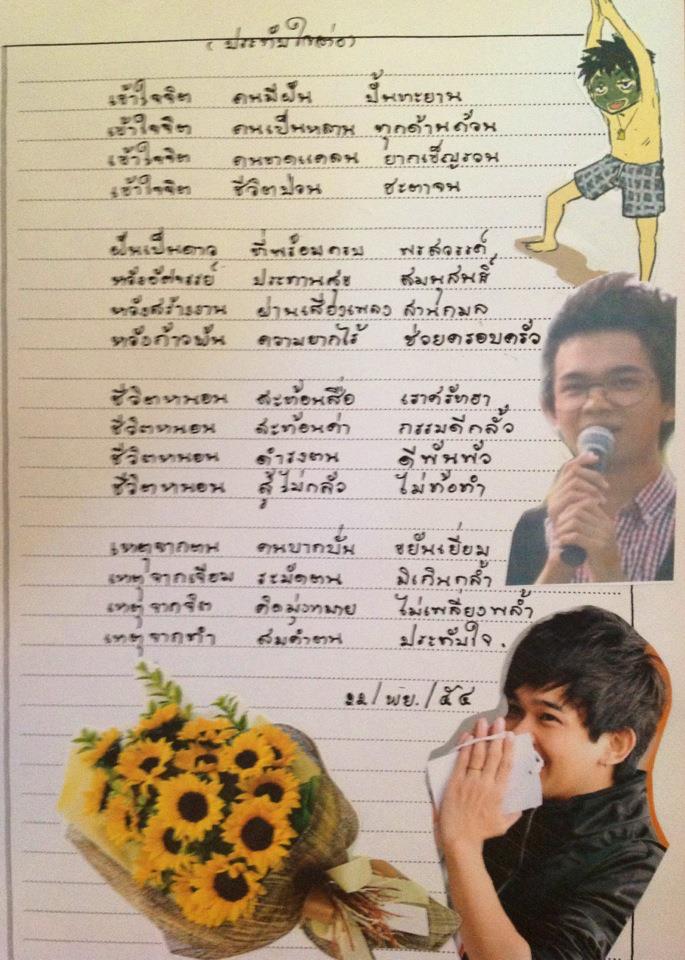 (ประทับใจเต๋อ)
เข้าใจจิต คนมีฝัน ปั้นทะยาน
เข้าใจจิต คนเป็นหลาน ทุกด้านด้วน
เข้าใจจิต คนขาดแคลน ยากเข็ญรวน
เข้าใจจิต ชีวิตป่วน ชะตาจน
ฝันเป็นดาว ที่พร้อมครบ พรสวรรค์
หวังอัศจรรย์ ประทานสุข สมบุสนธิ์
หวังสร้างงาน ผ่านเสียงเพลง สานกมล
หวังก้าวพ้น ความยากไร้ ช่วยครอบครัว
ชีวิตหนอน สะท้อนสื่อ เราศรัทธา
ชีวิตหนอน สะท้อนค่า กรรมดีกลั้ว
ชีวิตหนอน ดำรงตน ดีพันพัว
ชีวิตหนอน สู้ไม่กลัว ไม่ท้อทำ
เหตุจากตน คนบากบั่น ขยันเยี่ยม
เหตุจากเจียม ระมัดตน มิเกินกล้ำ
เหตุจากจิต คิดมุ่งหมาย ไม่เพลี่ยงพล้ำ
เหตุจากทำ สมคำตน ประทับใจ.
๒๒/พย./๕๔